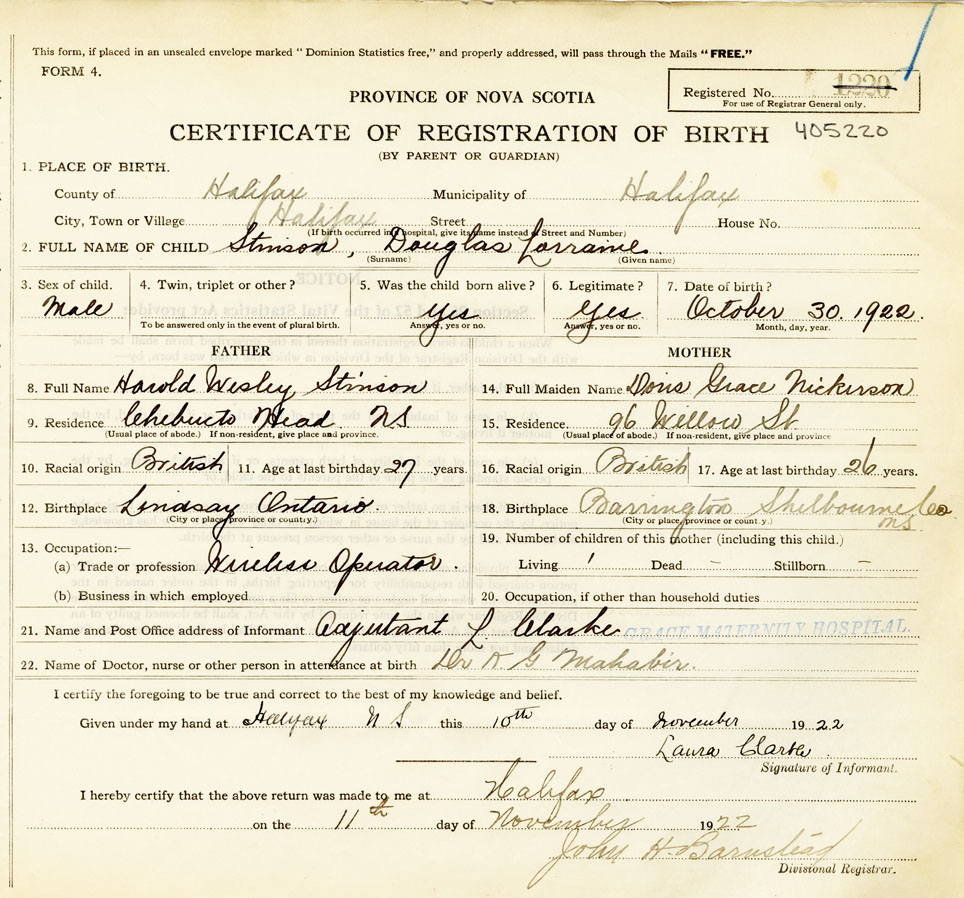 This form, if placed in an unsealed envelope marked "Dominion Statistics free," and properly addressed, will pass through the Mails "FREE."
FORM 4.
Registered No. 1220
For use of Registrar General only.
PROVINCE OF NOVA SCOTIA
CERTIFICATE OF REGISTRATION OF BIRTH 405220
(BY PARENT OR GUARDIAN)
1. PLACE OF BIRTH.
County of Halifax Municipality of Halifax
City, Town or Village Halifax Street House No.
(If birth occurred in hospital, give its name instead of Street and Number)
2. FULL NAME OF CHILD Stinson, Douglas Lorraine
(Surname) (Given name)
3. Sex of child. 4. Twin, triplet or other? 5. Was the child born alive? 6. Legitimate? 7. Date of birth?
Male Yes Yes October 30. 1922.
To be answered only in the event of plural birth. Answer, yes or no. Answer, yes or no. Month, day, year.
FATHER MOTHER
8. Full Name Harold Wesley Stinson 14. Full Maiden Name Doris Grace Nickerson
9. Residence Chebucto Head. NS 15. Residence. 96 Willow St
(Usual place of abode.) If non-resident, give place and province. (Usual place of abode.) If non-resident, give place and province
10. Racial origin British 11. Age at last birthday 27 years. 16. Racial origin British 17. Age at last birthday 26 years.
12. Birthplace Lindsay Ontario. 18. Birthplace Barrington Shelbourne Co NS.
(City or place, province or country.) (City or place, province or country.)
13. Occupation:— 19. Number of children of this mother (including this child.)
(a) Trade or profession Wireless Operator. Living 1 Dead - Stillborn -
(b) Business in which employed 20. Occupation, if other than household duties
21. Name and Post Office address of Informant Adjutant L. Clarke GRACE MATERNITY HOSPITAL.
22. Name of Doctor, nurse or other person in attendance at birth Dr A G Mahabir.
I certify the foregoing to be true and correct to the best of my knowledge and belief.
Given under my hand at Halifax N S this 10th day of November 1922
Laura Clarke
Signature of Informant.
I hereby certify that the above return was made to me at Halifax
on the 11th day of November 1922
John H. Barnstead
Divisional Registrar.